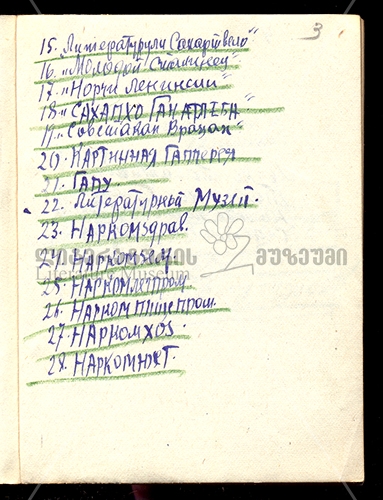 3
15. Литературули Сакартвело"
16. "Молодой Сталинец"
17. "Норчи Ленинели"
18. "САХАЛХО ГАНАТЛЕБА
19. "Советкан Врацан"
20. КАРТИННАЯ Галлерея
21. ГАПУ.
22. Литературный Музей.
23. НАРКОМздрав.
ლიტერატურის მუზეუმი
24. НАРКОМЗЕМ
Literature Museum
25. НАРКОМлегпром
26. НАРКОМпищепром.
27. НАРКОМХОЗ.
28. НАРКОМЮСТ.